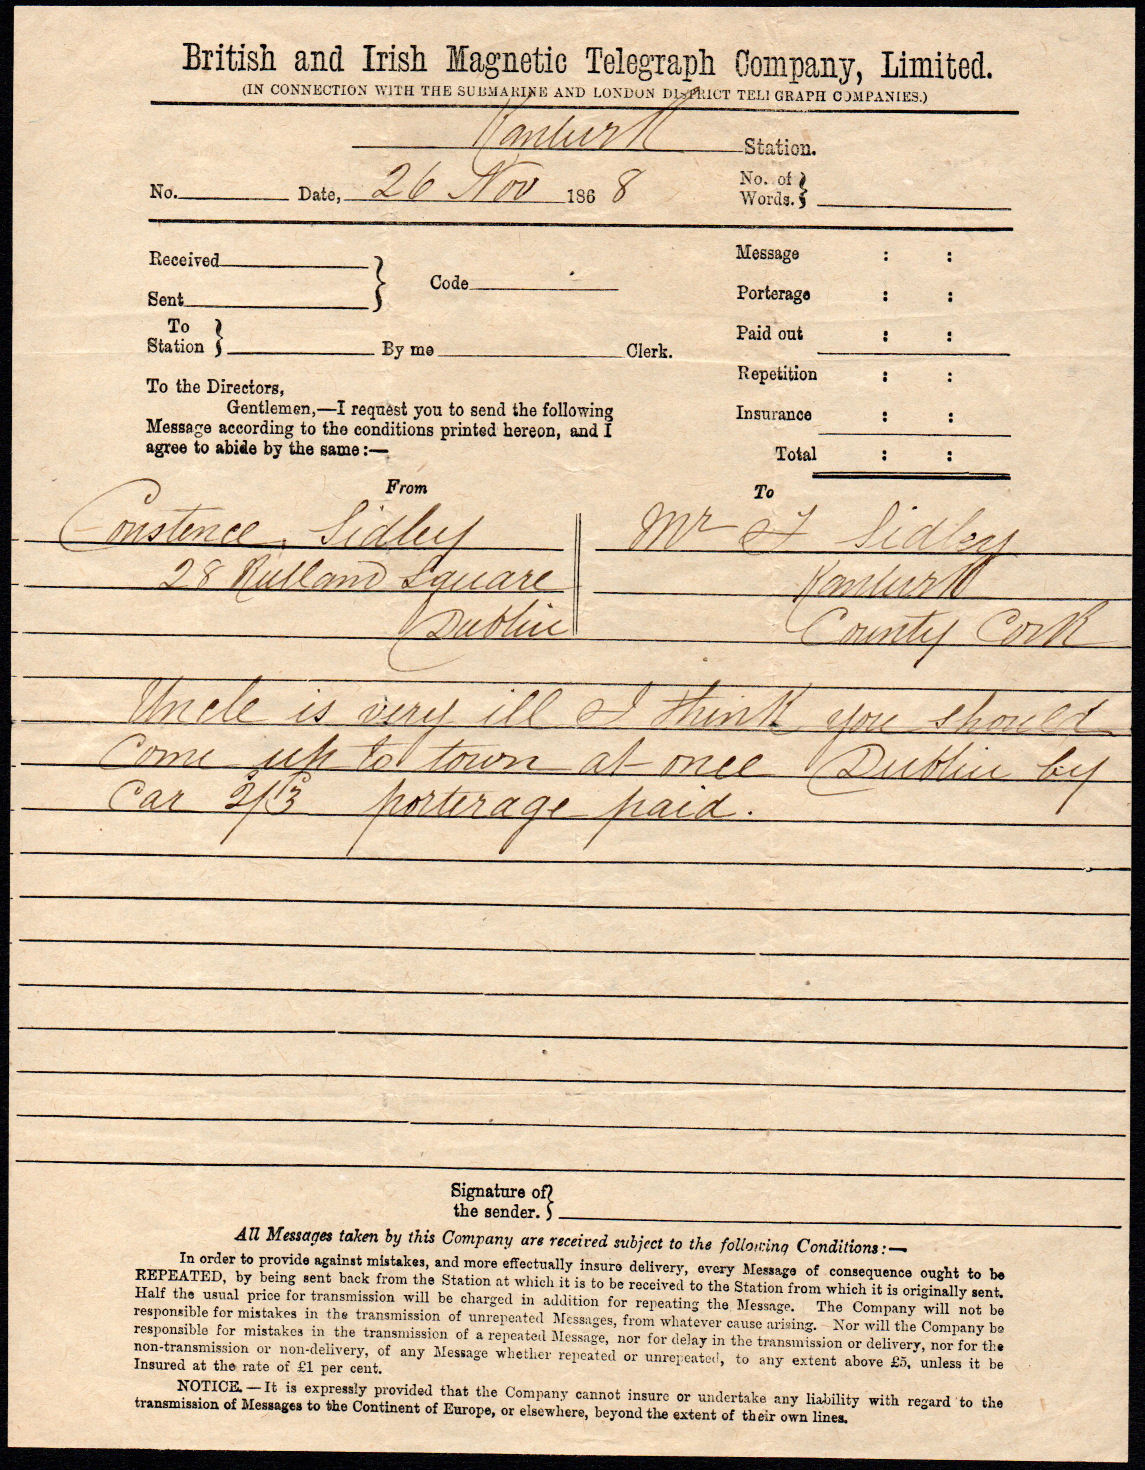 British and Irish Magnetic Telegraph Company, Limited.
(IN CONNECTION WITH THE SUBMARINE AND LONDON DISTRICT TELEGRAPH COMPANIES.)
Kanturk Station.
No. Date, 26 Nov 1868 No. of Words.
Received Message : :
Code
Sent Porterage : :
To Station By me Clerk. Paid out : :
Repetition : :
To the Directors,
Gentlemen,—I request you to send the following Insurance : :
Message according to the conditions printed hereon, and I
agree to abide by the same:— Total : :
From To
Constence Sidley Mr F Sidley
28 Rutland Square Kanturk
Dublin County Cork
Uncle is very ill I think you should
come up to town at once Dublin by
car 2/3 porterage paid.
Signature of
the sender.
All Messages taken by this Company are received subject to the following Conditions:—
In order to provide against mistakes, and more effectually insure delivery, every Message of consequence ought to be
REPEATED, by being sent back from the Station at which it is to be received to the Station from which it is originally sent.
Half the usual price for transmission will be charged in addition for repeating the Message. The Company will not be
responsible for mistakes in the transmission of unrepeated Messages, from whatever cause arising. Nor will the Company be
responsible for mistakes in the transmission of a repeated Message, nor for delay in the transmission or delivery, nor for the
non-transmission or non-delivery, of any Message whether repeated or unrepeated, to any extent above £5, unless it be
Insured at the rate of £1 per cent.
NOTICE.—It is expressly provided that the Company cannot insure or undertake any liability with regard to the
transmission of Messages to the Continent of Europe, or elsewhere, beyond the extent of their own lines.